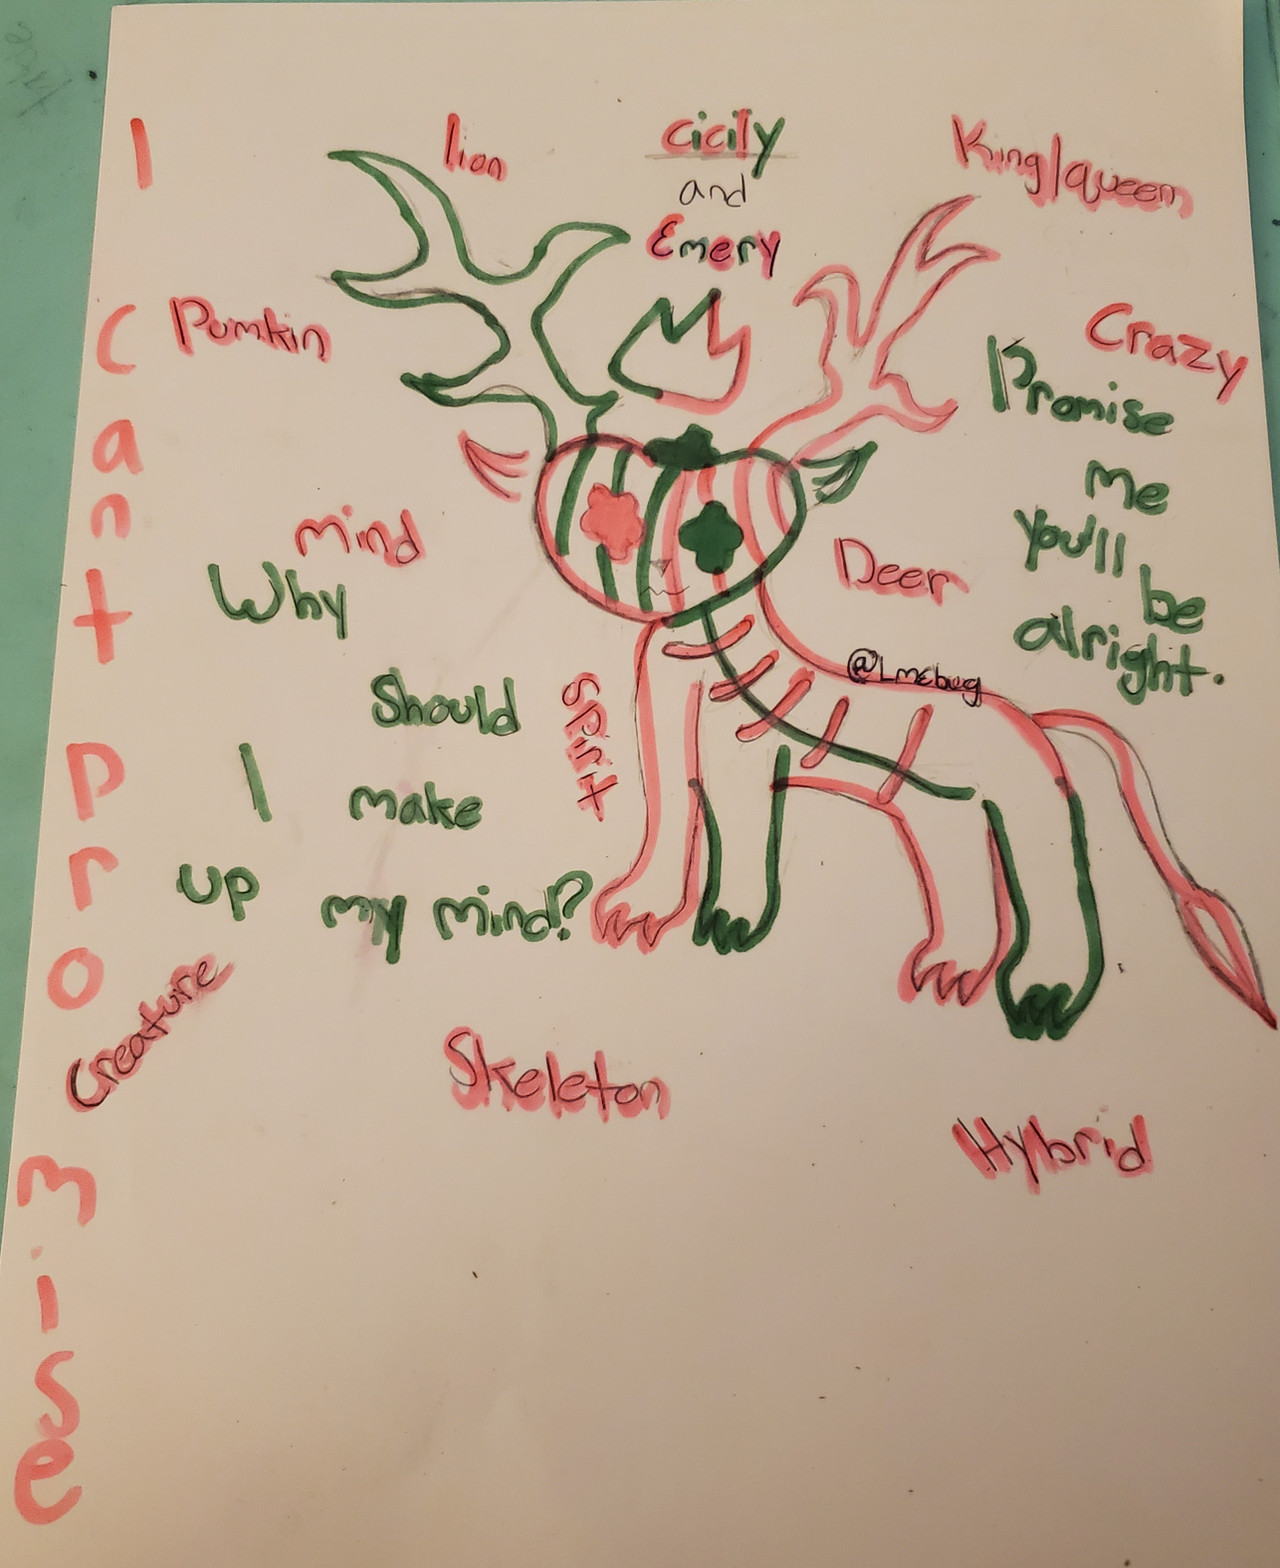 I Cant promise
lion
Cicily
and
Emery
King/queen
Pumkin
Crazy
Promise
Me
you'll
be
alright.
Mind
Deer
Why
Should
I make
up my mind?
@Lmebug
Creature
Skeleton
Hybrid